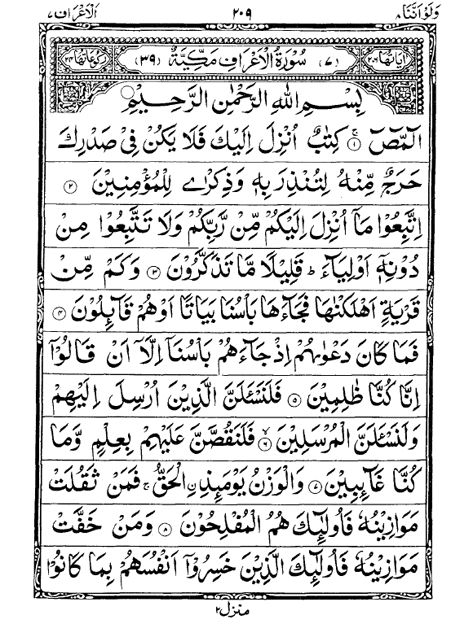 ولو اننا ٨ ٢٠٩ الاعراف ٧
اٰیاتها ٢٠٦ (٧) سُوْرَةُ الْاَعْرَافِ مَكِّيَّةٌ (٣٩) رکوعاتها ٢٤
بِسْمِ اللهِ الرَّحْمٰنِ الرَّحِيْمِ
الٓمّٓصٓ ۚ﴿١﴾ كِتٰبٌ اُنْزِلَ اِلَيْكَ فَلَا يَكُنْ فِيْ صَدْرِكَ
حَرَجٌ مِّنْهُ لِتُنْذِرَ بِهٖ وَذِكْرٰى لِلْمُؤْمِنِيْنَ ﴿٢﴾
اِتَّبِعُوْا مَآ اُنْزِلَ اِلَيْكُمْ مِّنْ رَّبِّكُمْ وَلَا تَتَّبِعُوْا مِنْ
دُوْنِهٖٓ اَوْلِيَآءَ ؕ قَلِيْلًا مَّا تَذَكَّرُوْنَ ﴿٣﴾ وَكَمْ مِّنْ
قَرْيَةٍ اَهْلَكْنٰهَا فَجَآءَهَا بَاْسُنَا بَيَاتًا اَوْ هُمْ قَآئِلُوْنَ ﴿٤﴾
فَمَا كَانَ دَعْوٰىهُمْ اِذْ جَآءَهُمْ بَاْسُنَآ اِلَّآ اَنْ قَالُوْٓا
اِنَّا كُنَّا ظٰلِمِيْنَ ﴿٥﴾ فَلَنَسْـَٔلَنَّ الَّذِيْنَ اُرْسِلَ اِلَيْهِمْ
وَلَنَسْـَٔلَنَّ الْمُرْسَلِيْنَ ۙ﴿٦﴾ فَلَنَقُصَّنَّ عَلَيْهِمْ بِعِلْمٍ وَّمَا
كُنَّا غَآئِبِيْنَ ﴿٧﴾ وَالْوَزْنُ يَوْمَئِذِ ِۨالْحَقُّ ۚ فَمَنْ ثَقُلَتْ
مَوَازِيْنُهٗ فَاُولٰٓئِكَ هُمُ الْمُفْلِحُوْنَ ﴿٨﴾ وَمَنْ خَفَّتْ
مَوَازِيْنُهٗ فَاُولٰٓئِكَ الَّذِيْنَ خَسِرُوْٓا اَنْفُسَهُمْ بِمَا كَانُوْا
منزل ٢